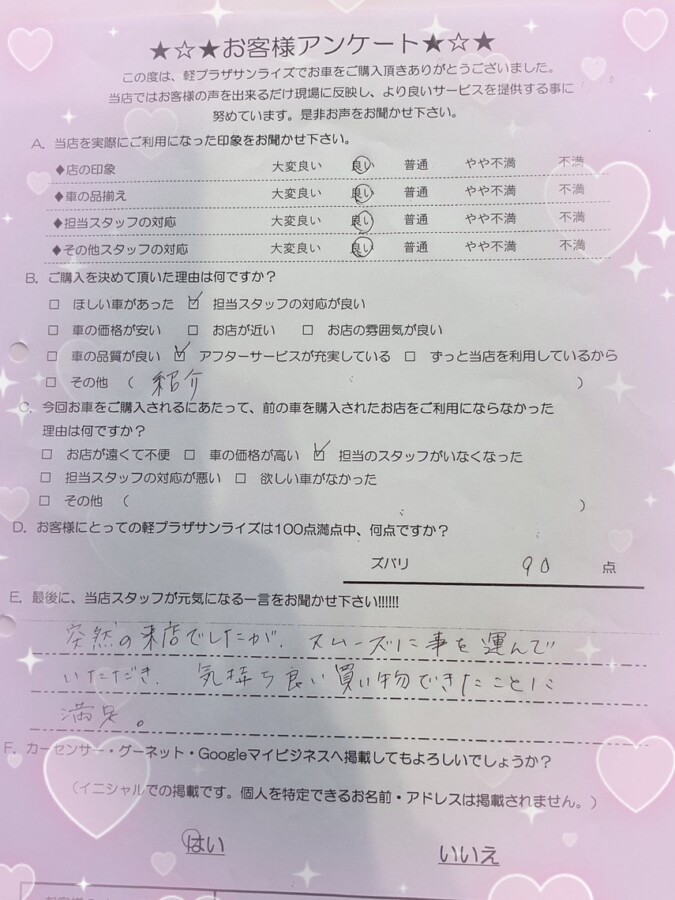 ★☆★お客様アンケート★☆★
この度は、軽プラザサンライズでお車をご購入頂きありがとうございました。
当店ではお客様の声を出来るだけ現場に反映し、より良いサービスを提供する事に
努めています。是非お声をお聞かせ下さい。
A. 当店を実際にご利用になった印象をお聞かせ下さい。
◆店の印象 大変良い 良い 普通 やや不満 不満
◆車の品揃え 大変良い 良い 普通 やや不満 不満
◆担当スタッフの対応 大変良い 良い 普通 やや不満 不満
◆その他スタッフの対応 大変良い 良い 普通 やや不満 不満
B. ご購入を決めて頂いた理由は何ですか？
□ ほしい車があった ☑ 担当スタッフの対応が良い
□ 車の価格が安い □ お店が近い □ お店の雰囲気が良い
□ 車の品質が良い ☑ アフターサービスが充実している □ ずっと当店を利用しているから
□ その他 ( 紹介 )
C. 今回お車をご購入されるにあたって、前の車を購入されたお店をご利用にならなかった
理由は何ですか？
□ お店が遠くて不便 □ 車の価格が高い ☑ 担当のスタッフがいなくなった
□ 担当スタッフの対応が悪い □ 欲しい車がなかった
□ その他 ( )
D. お客様にとっての軽プラザサンライズは100点満点中、何点ですか？
ズバリ 90 点
E. 最後に、当店スタッフが元気になる一言をお聞かせ下さい!!!!!!
突然の来店でしたが、スムーズに事を運んで
いただき、気持ち良い買い物できたことに
満足。
F. カーセンサー・グーネット・Googleマイビジネスへ掲載してもよろしいでしょうか？
(イニシャルでの掲載です。個人を特定できるお名前・アドレスは掲載されません。)
はい いいえ